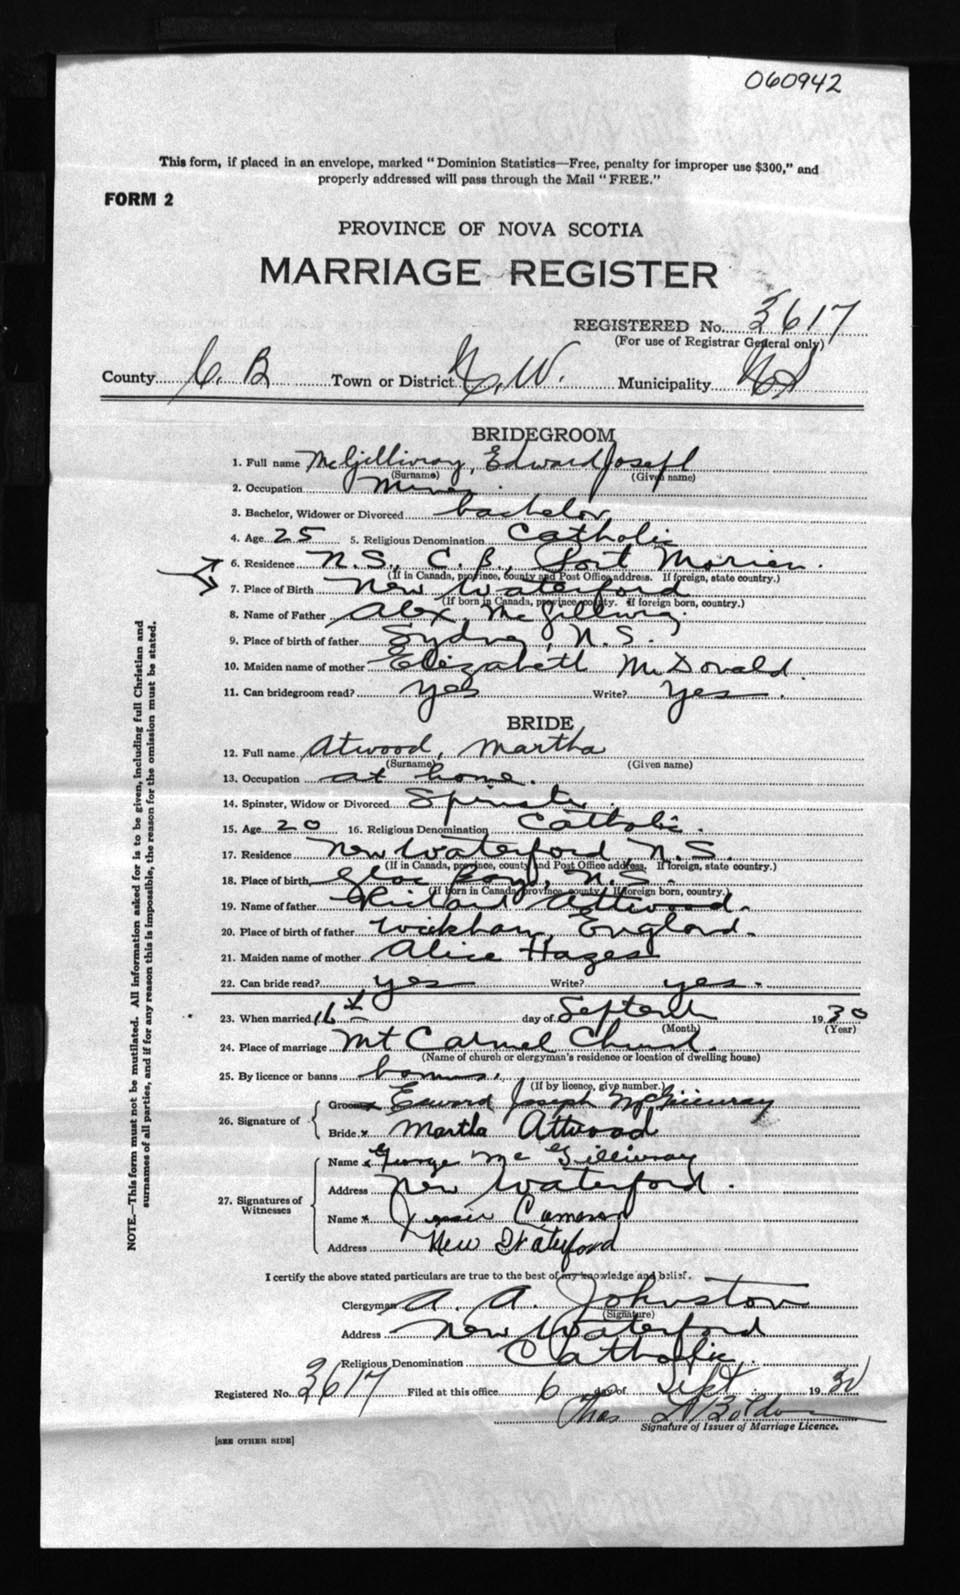 060942
This form, if placed in an envelope, marked "Dominion Statistics—Free, penalty for improper use $300," and
properly addressed will pass through the Mail "FREE."
FORM 2
PROVINCE OF NOVA SCOTIA
MARRIAGE REGISTER
REGISTERED No. 3617
(For use of Registrar General only)
County C. B Town or District N. W. Municipality
BRIDEGROOM
1. Full name McGillivray, Edward Joseph
(Surname) (Given name)
2. Occupation Miner
3. Bachelor, Widower or Divorced bachelor
4. Age 25 5. Religious Denomination Catholic
6. Residence N.S., C.B., Port Morien.
(If in Canada, province, county and Post Office address. If foreign, state country.)
7. Place of Birth New Waterford
(If born in Canada, province, county. If foreign born, country.)
8. Name of Father Alex McGillivray
9. Place of birth of father Sydney, N.S.
10. Maiden name of mother Elizabeth McDonald.
11. Can bridegroom read? yes Write? yes.
BRIDE
12. Full name Atwood, Martha
(Surname) (Given name)
13. Occupation at home.
14. Spinster, Widow or Divorced Spinster.
15. Age 20 16. Religious Denomination Catholic.
17. Residence New Waterford N.S.
(If in Canada, province, county and Post Office address. If foreign, state country.)
18. Place of birth Glace Bay, N.S.
(If born in Canada province, county. If foreign born, country.)
19. Name of father Richard Attwood.
20. Place of birth of father England.
21. Maiden name of mother Alice
22. Can bride read? yes Write? yes.
23. When married 16 day of September 1930
(Month) (Year)
24. Place of marriage Mt Carmel Church.
(Name of church or clergyman's residence or location of dwelling house)
25. By licence or banns
(If by licence, give number.)
26. Signature of
Groom x Edward Joseph McGillivray
Bride x Martha Attwood
27. Signatures of Witnesses
Name x George McGillivray
Address New Waterford.
Name x Jessie Cameron
Address New Waterford
I certify the above stated particulars are true to the best of my knowledge and belief.
Clergyman A. A. Johnston
(Signature)
Address New Waterford
Religious Denomination Catholic.
Registered No. 3617 Filed at this office 6 day of Sept. 1930
Thos
Signature of Issuer of Marriage Licence.
[SEE OTHER SIDE]
NOTE.—This form must not be mutilated. All information asked for is to be given, including full Christian and
surnames of all parties, and if for any reason this is impossible, the reason for the omission must be stated.